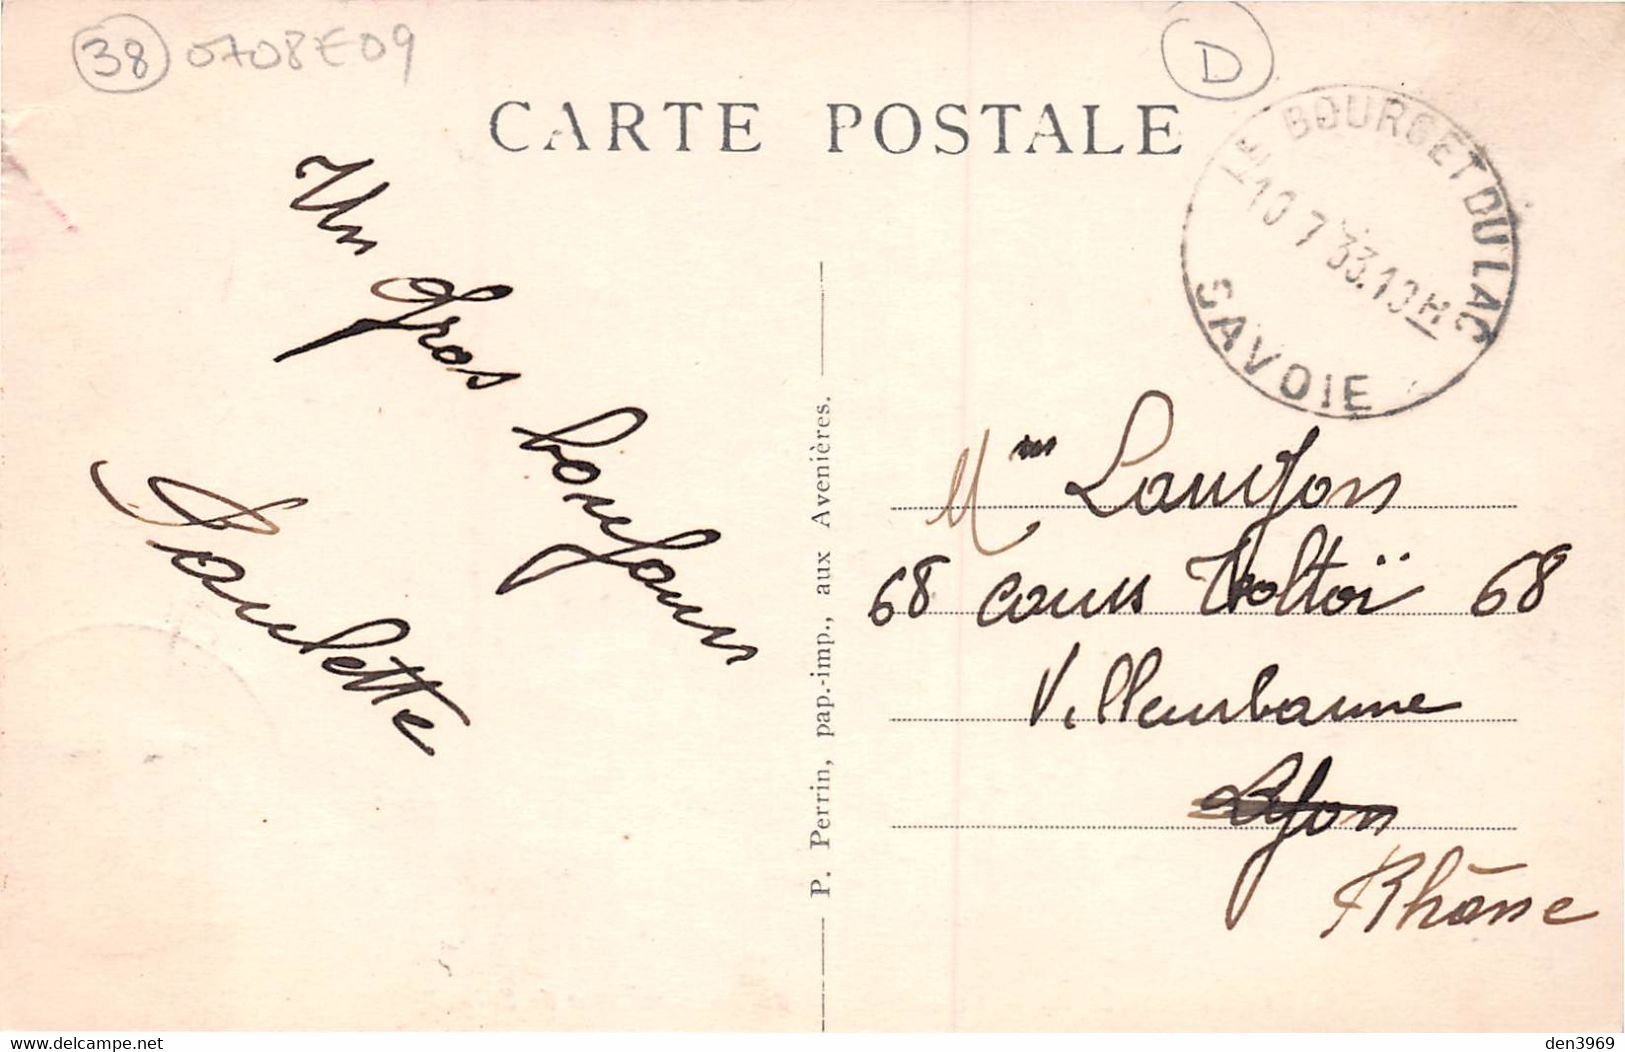 38 0708E09
D
CARTE POSTALE
LE BOURGET DU LAC
10 7 33.13H
SAVOIE
Un
gros
bonjour
Paulette
P. Perrin, pap.-imp., aux Avenières.
Mme
68 cours 68
Villeurbanne
Lyon
Rhône
den3969